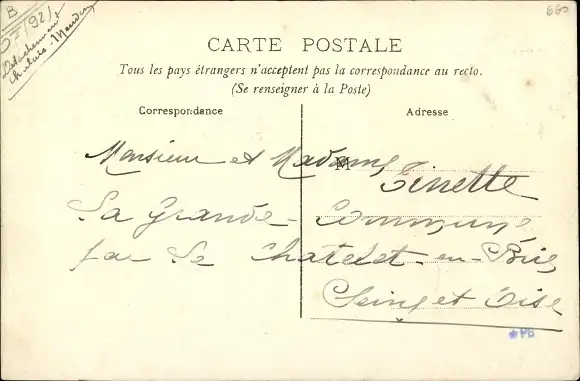 B
660
CARTE POSTALE
Tous les pays étrangers n'acceptent pas la correspondance au recto.
(Se renseigner à la Poste)
Correspondance
Adresse
M
Monsieur et Madame
Tinette
La Grande - Commune
par Le Chatelet-en-Brie
Seine et Oise
PB